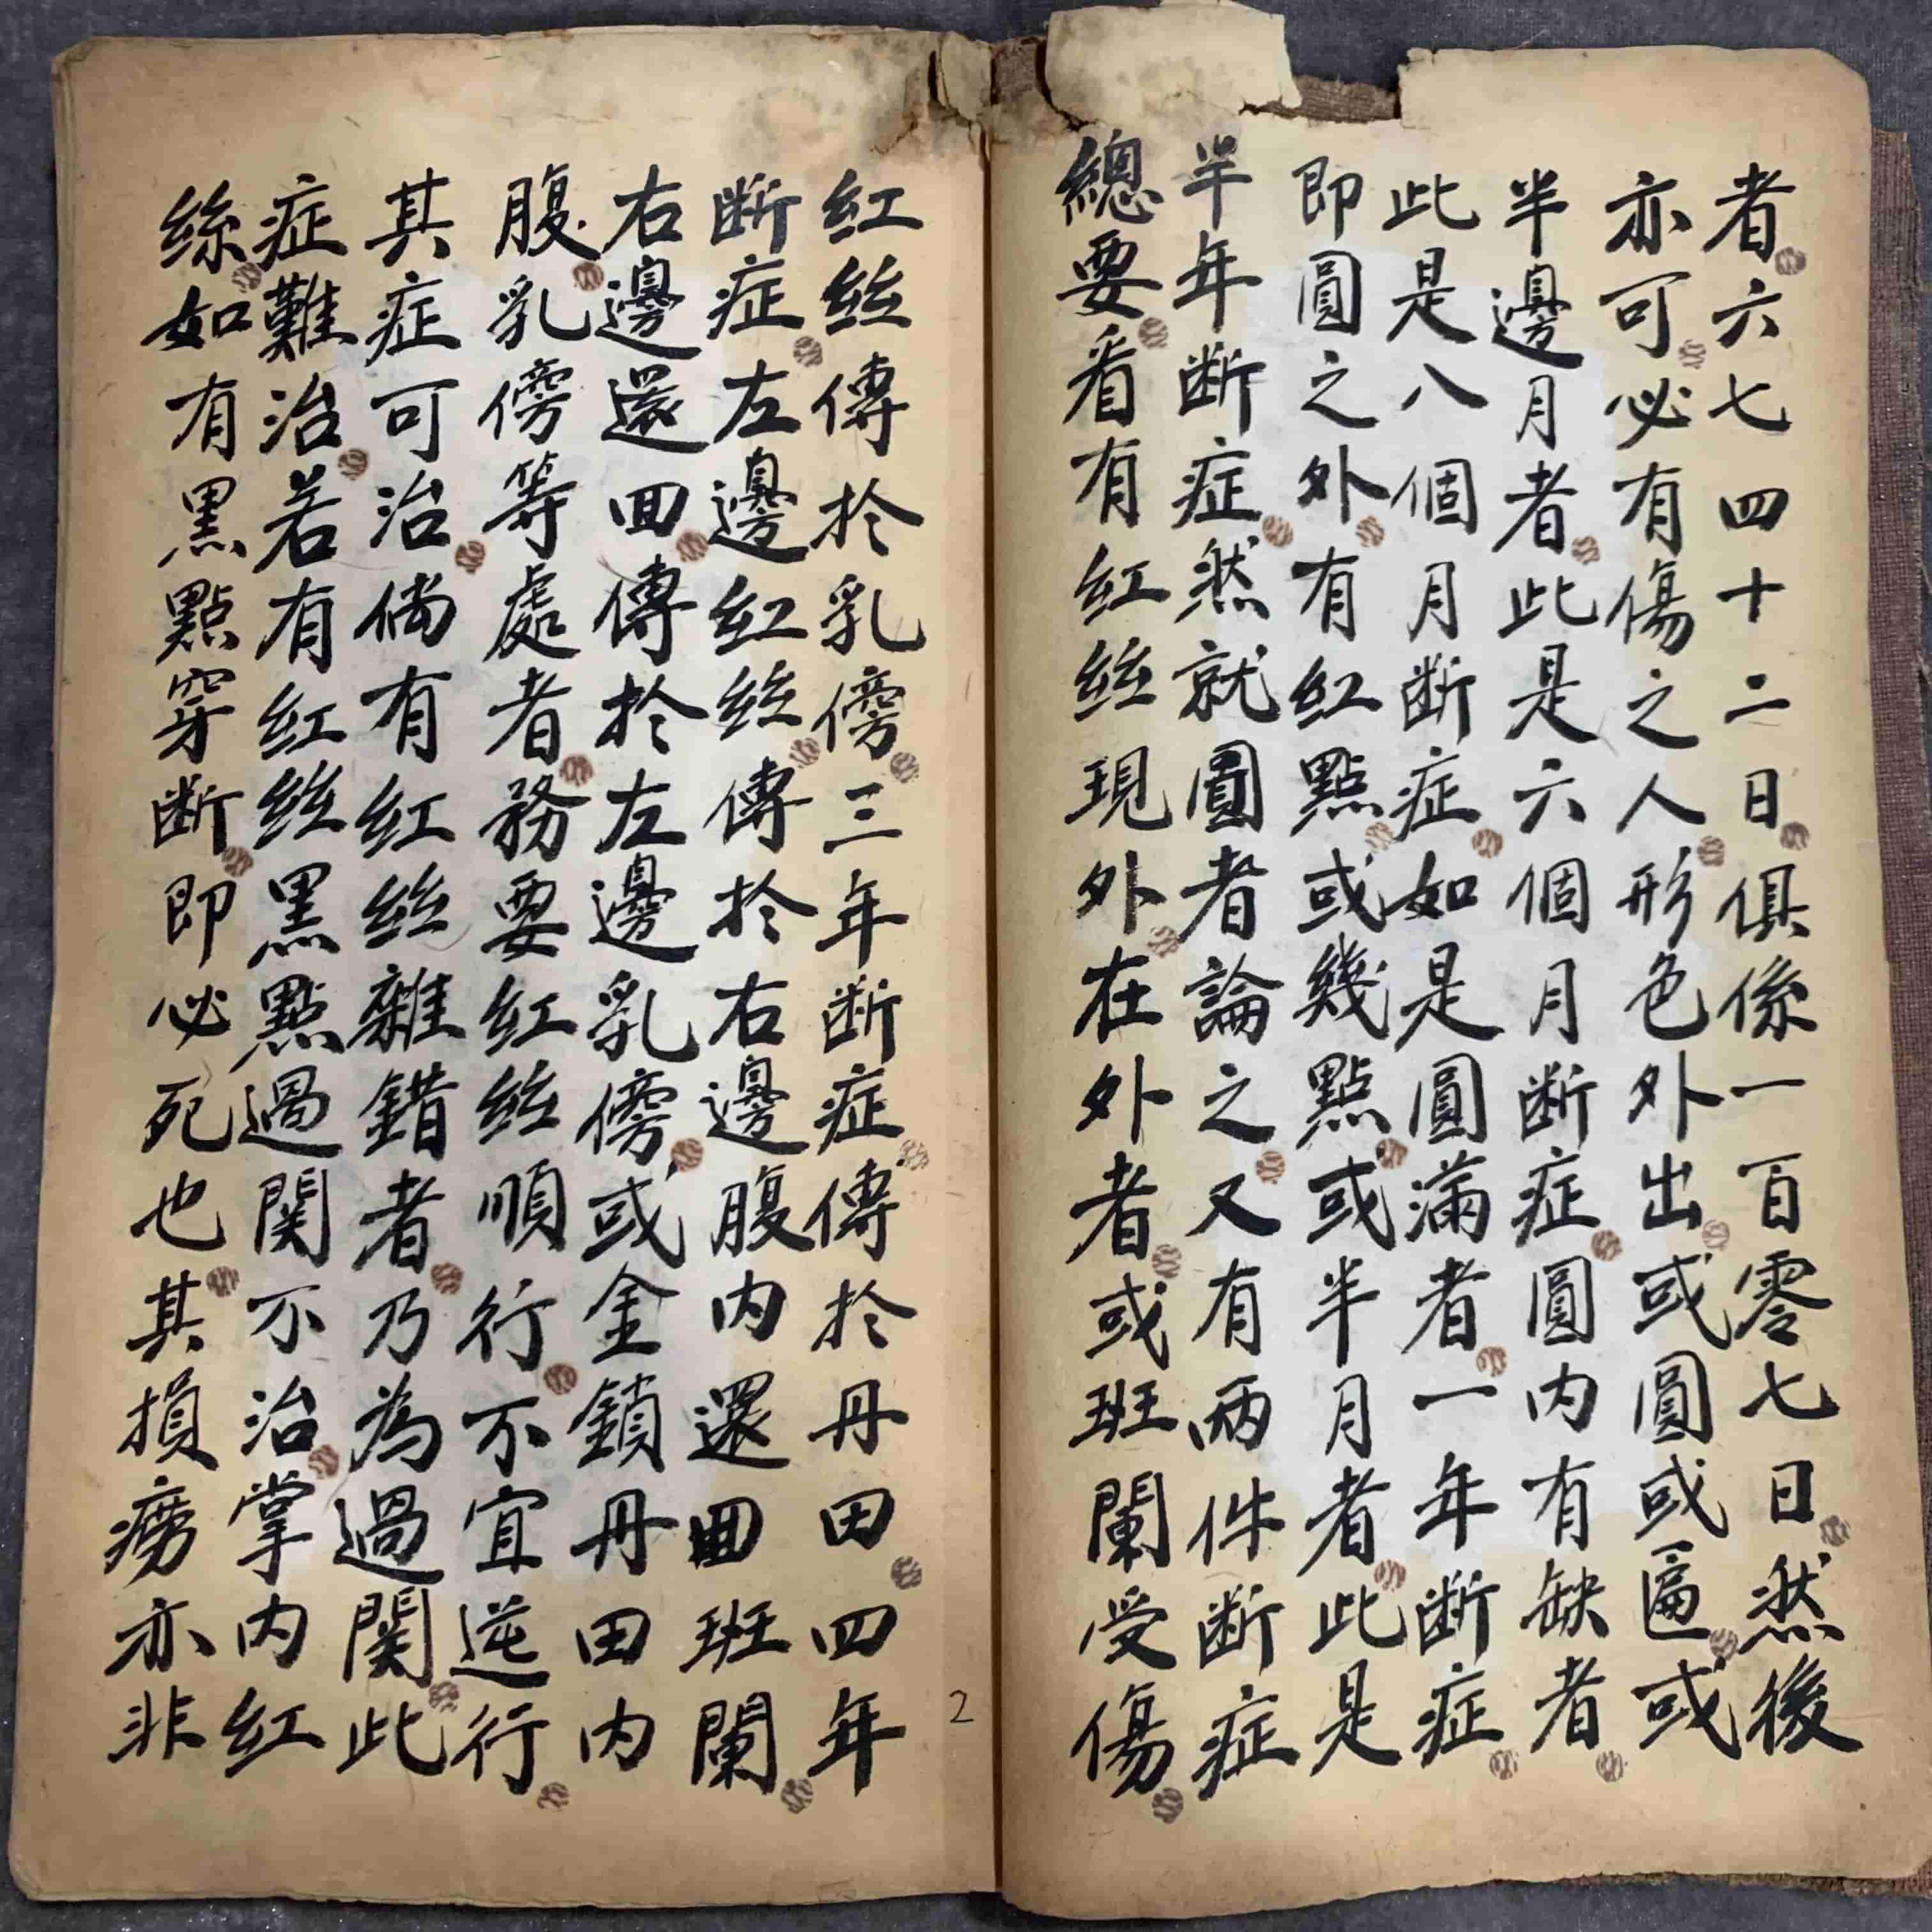 者六七四十二日俱係一百零七日然後
亦可必有傷之人形色外出或圓或匾或
半邊月者此是六個月断症圓内有缺者
此是八個月断症如是圓滿者一年断症
即圓之外有紅點或幾點或半月者此是
半年断症然就圓者論之又有両件断症
總要看有紅絲現外在外者或班闌受傷
紅絲傳扵乳傍三年断症傳扵丹田四年
断症左邊紅絲傳扵右邊腹内還囬班闌
右邊還囬傳扵左邊乳傍或金鎖丹田内
腹乳傍等處者務要紅絲順行不宜逆行
其症可治倘有紅絲雜錯者乃為過関此
症難治若有紅絲黒點過関不治掌内紅
絲如有黒點穿断即必死也其損癆亦非
2